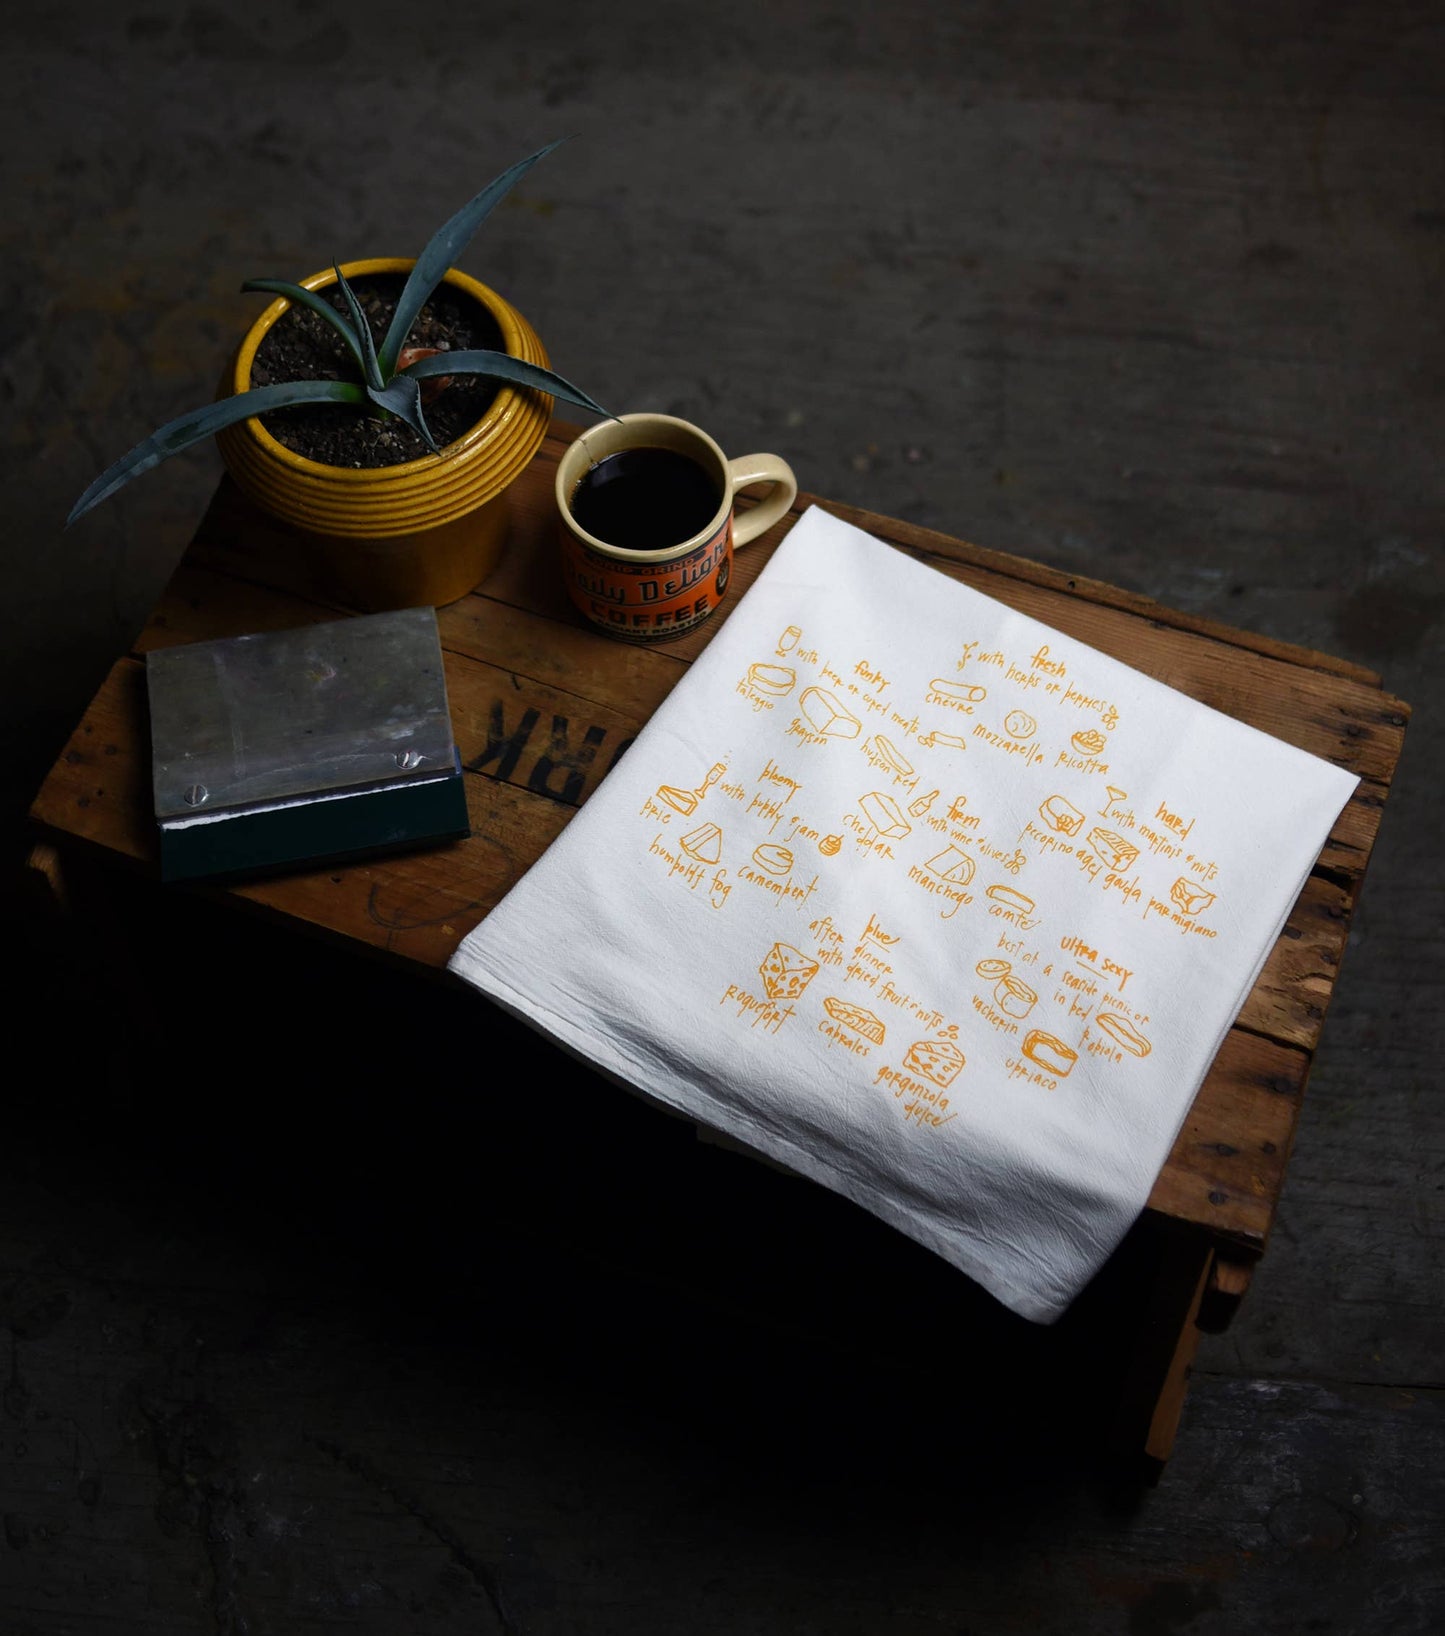 Daily Delight
COFFEE
RK
fresh
with herbs or berries
chevre
mozzarella
ricotta
funky
with beer or cured meats
taleggio
grayson
hudson red
bloomy
with bubbly & jam
brie
humboldt fog
camembert
firm
with wine & olives
cheddar
manchego
comte
hard
with martinis & nuts
pecorino
aged gouda
parmigiano
blue
after dinner
with dried fruit & nuts
roquefort
cabrales
gorgonzola
dulce
ultra sexy
best at a seaside picnic or
in bed
vacherin
robiola
ubriaco